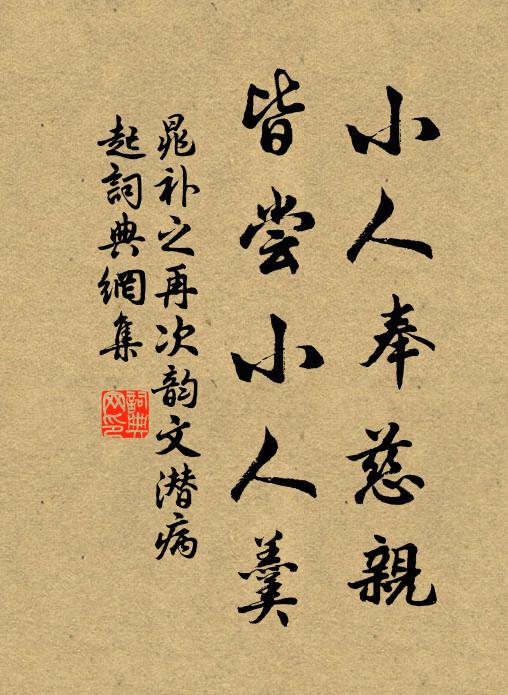 小人奉慈親
皆尝小人羹
晁补之再次韵文潜病
起詞典網集
詞典
网印